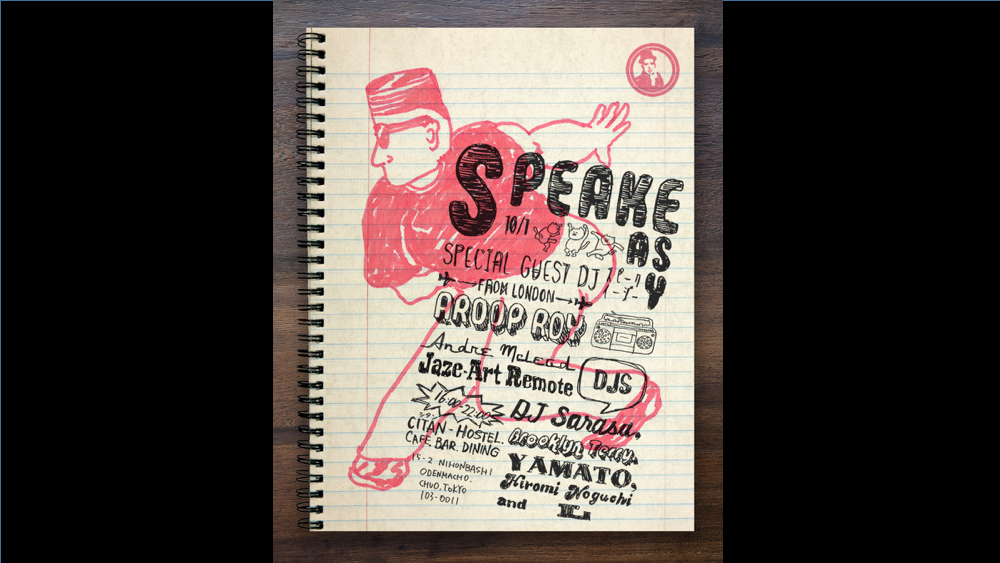 SPEAKE
AS
Y
10/1
SPECIAL GUEST DJ
FROM LONDON
AROOP ROY
Andre McLeod
Jaze-Art Remote
DJS
16:00-22:00
DJ Sarasa,
CITAN-HOSTEL.
CAFE. BAR. DINING
Brooklyn Terry,
15-2 NIHONBASHI
ODENMACHO.
CHUO. TOKYO
103-0011
YAMATO,
Hiromi Noguchi
and